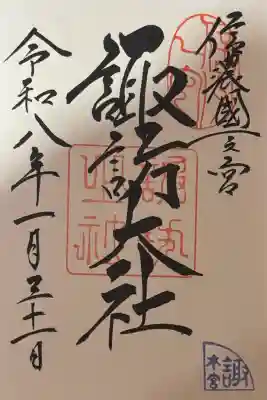 信濃國一之宮
諏訪大社
令和八年一月三十一日
諏
本宮